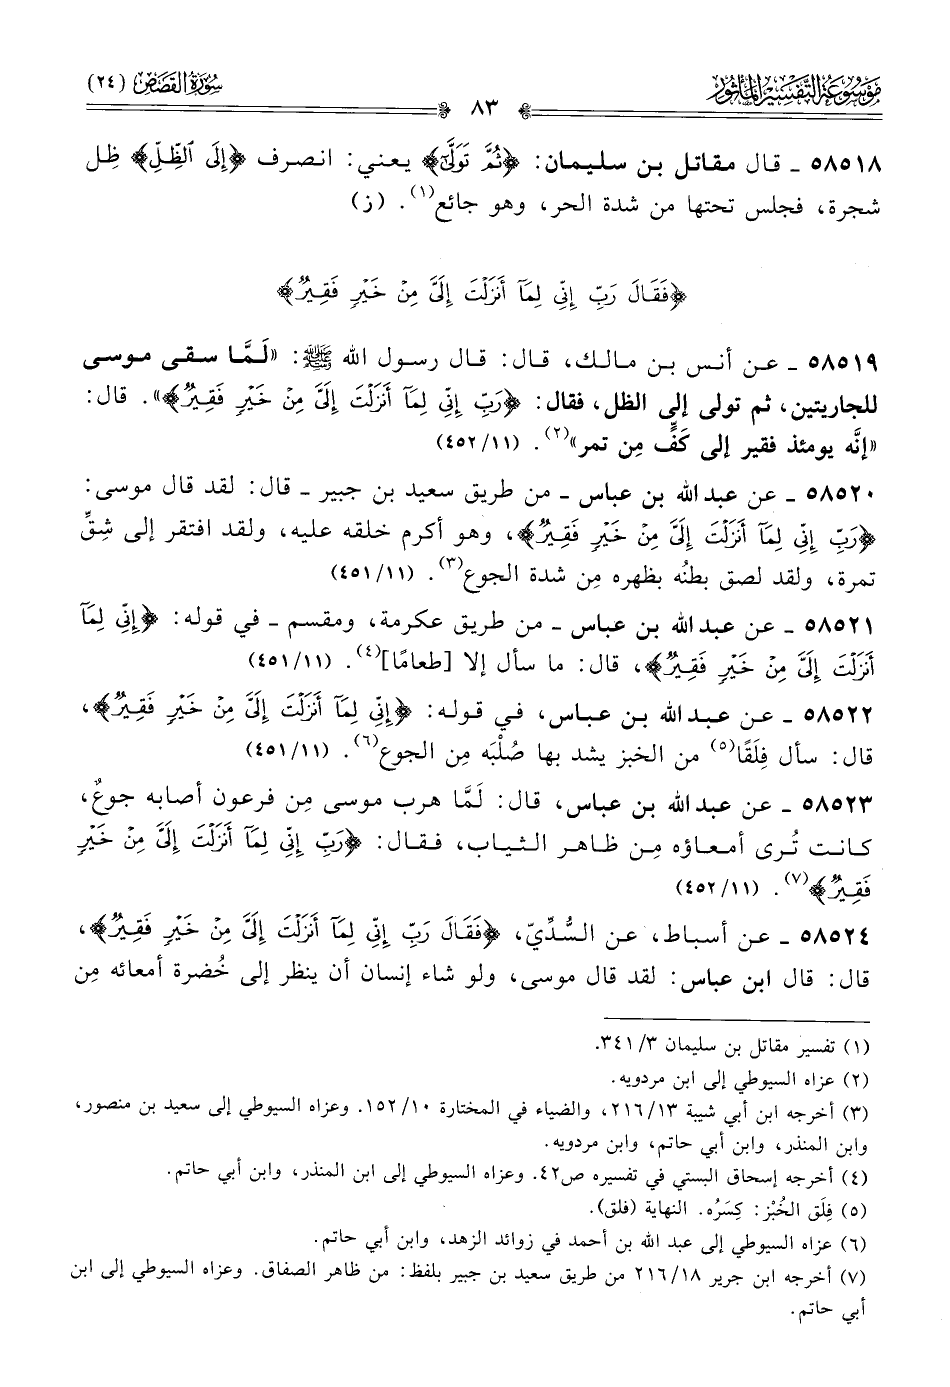 موسوعة التفسير المأثور
سورة القصص (٢٤)
٨٣
٥٨٥١٨ ـ قال مقاتل بن سليمان: ﴿ثُمَّ تَوَلَّىٰٓ﴾ يعني: انصرف ﴿إِلَى ٱلظِّلِّ﴾ ظِل
شجرة، فجلس تحتها من شدة الحر، وهو جائع(١). (ز)
﴿فَقَالَ رَبِّ إِنِّي لِمَآ أَنزَلْتَ إِلَيَّ مِنْ خَيْرٍ فَقِيرٌ﴾
٥٨٥١٩ ـ عن أنس بن مالك، قال: قال رسول الله ﷺ: «لَمَّا سقى موسى
للجاريتين، ثم تولى إلى الظل، فقال: ﴿رَبِّ إِنِّي لِمَآ أَنزَلْتَ إِلَيَّ مِنْ خَيْرٍ فَقِيرٌ﴾». قال:
«إنَّه يومئذ فقير إلى كَفٍّ مِن تمر»(٢). (٤٥٢/١١)
٥٨٥٢٠ ـ عن عبد الله بن عباس ـ من طريق سعيد بن جبير ـ قال: لقد قال موسى:
﴿رَبِّ إِنِّي لِمَآ أَنزَلْتَ إِلَيَّ مِنْ خَيْرٍ فَقِيرٌ﴾، وهو أكرم خلقه عليه، ولقد افتقر إلى شِقِّ
تمرة، ولقد لصق بطنُه بظهره مِن شدة الجوع(٣). (٤٥١/١١)
٥٨٥٢١ ـ عن عبد الله بن عباس ـ من طريق عكرمة، ومقسم ـ في قوله: ﴿إِنِّي لِمَآ
أَنزَلْتَ إِلَيَّ مِنْ خَيْرٍ فَقِيرٌ﴾، قال: ما سأل إلا [طعامًا](٤). (٤٥١/١١)
٥٨٥٢٢ ـ عن عبد الله بن عباس، في قوله: ﴿إِنِّي لِمَآ أَنزَلْتَ إِلَيَّ مِنْ خَيْرٍ فَقِيرٌ﴾،
قال: سأل فِلَقًا(٥) من الخبز يشد بها صُلْبَه مِن الجوع(٦). (٤٥١/١١)
٥٨٥٢٣ ـ عن عبد الله بن عباس، قال: لَمَّا هرب موسى مِن فرعون أصابه جوعٌ،
كانت تُرى أمعاؤه مِن ظاهر الثياب، فقال: ﴿رَبِّ إِنِّي لِمَآ أَنزَلْتَ إِلَيَّ مِنْ خَيْرٍ
فَقِيرٌ﴾(٧). (٤٥٢/١١)
٥٨٥٢٤ ـ عن أسباط، عن السُّدِّيّ، ﴿فَقَالَ رَبِّ إِنِّي لِمَآ أَنزَلْتَ إِلَيَّ مِنْ خَيْرٍ فَقِيرٌ﴾،
قال: قال ابن عباس: لقد قال موسى، ولو شاء إنسان أن ينظر إلى خُضرة أمعائه مِن
(١) تفسير مقاتل بن سليمان ٣٤١/٣.
(٢) عزاه السيوطي إلى ابن مردويه.
(٣) أخرجه ابن أبي شيبة ٢١٦/١٣، والضياء في المختارة ١٥٢/١٠. وعزاه السيوطي إلى سعيد بن منصور،
وابن المنذر، وابن أبي حاتم، وابن مردويه.
(٤) أخرجه إسحاق البستي في تفسيره ص٤٢. وعزاه السيوطي إلى ابن المنذر، وابن أبي حاتم.
(٥) فِلَق الخُبْز: كِسَرُه. النهاية (فلق).
(٦) عزاه السيوطي إلى عبد الله بن أحمد في زوائد الزهد، وابن أبي حاتم.
(٧) أخرجه ابن جرير ٢١٦/١٨ من طريق سعيد بن جبير بلفظ: من ظاهر الصفاق. وعزاه السيوطي إلى ابن
أبي حاتم.